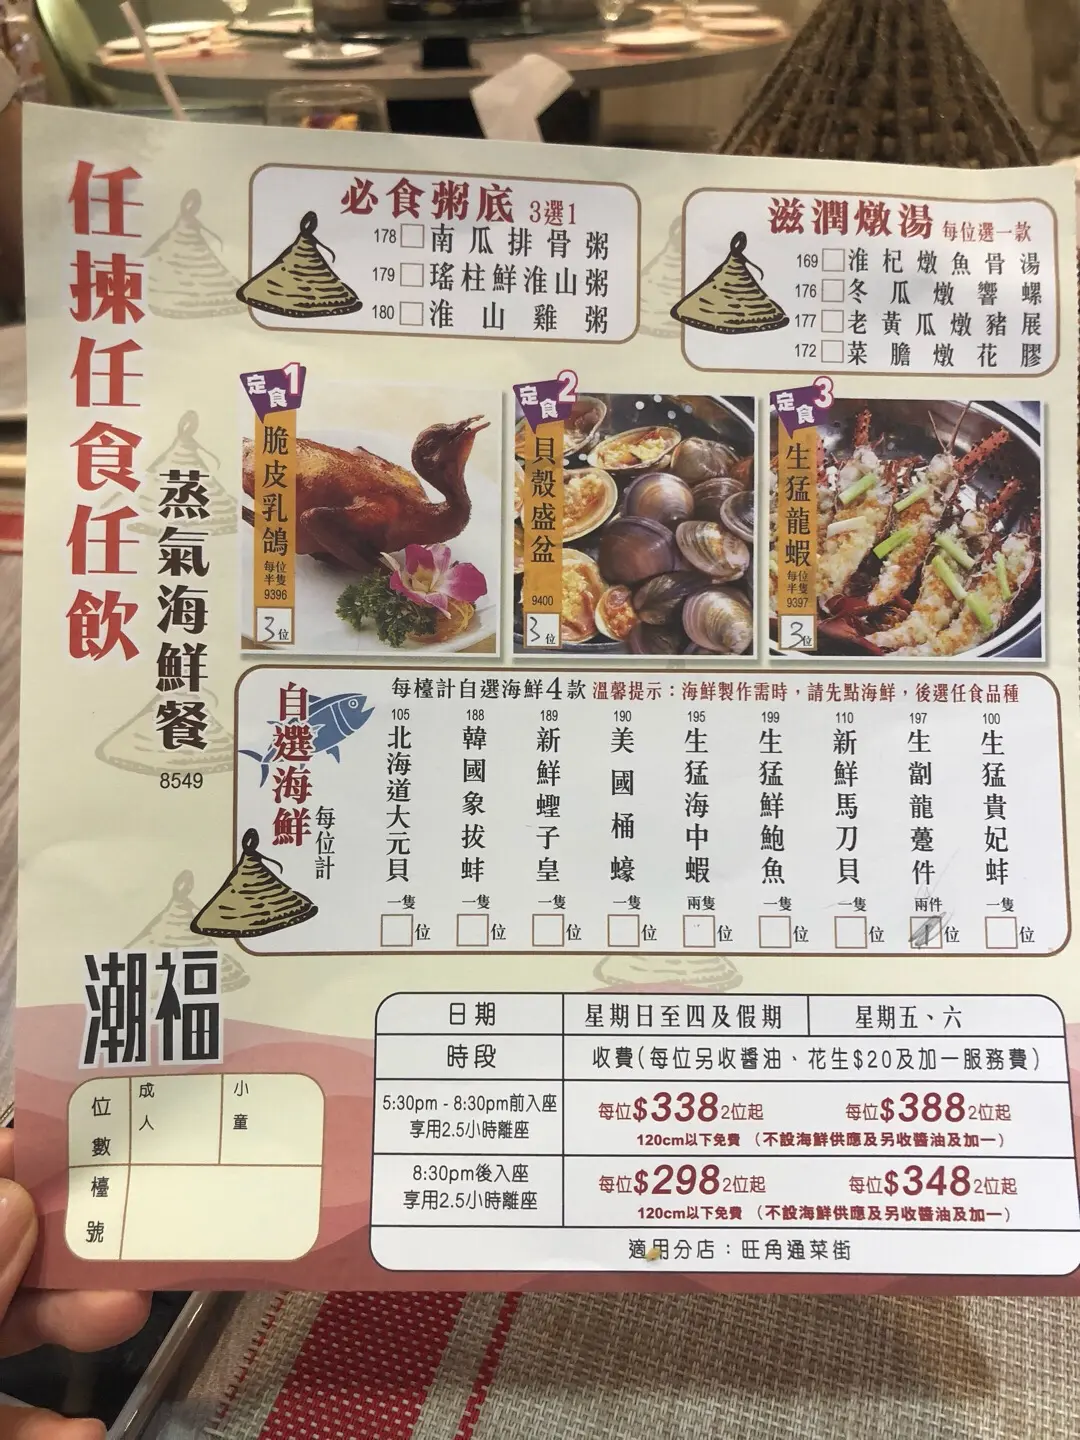 任揀任食任飲
蒸氣海鮮餐
8549
必食粥底 3選1
178 南瓜排骨粥
179 瑤柱鮮淮山粥
180 淮山雞粥
滋潤燉湯 每位選一款
169 淮杞燉魚骨湯
176 冬瓜燉響螺
177 老黃瓜燉豬展
172 菜膽燉花膠
定食1
脆皮乳鴿
每位半隻
9396
3位
定食2
貝殼盛盆
9400
3位
定食3
生猛龍蝦
每位半隻
9397
3位
自選海鮮
每位計
每檯計自選海鮮4款 溫馨提示：海鮮製作需時，請先點海鮮，後選任食品種
105 北海道大元貝 一隻 位
188 韓國象拔蚌 一隻 位
189 新鮮蟶子皇 一隻 位
190 美國桶蠔 一隻 位
195 生猛海中蝦 兩隻 位
199 生猛鮮鮑魚 一隻 位
110 新鮮馬刀貝 一隻 位
197 生劏龍躉件 兩件 位
100 生猛貴妃蚌 一隻 位
潮福
位數 成人 小童
檯號
日期 星期日至四及假期 星期五、六
時段 收費(每位另收醬油、花生$20及加一服務費)
5:30pm - 8:30pm前入座
享用2.5小時離座
每位$338 2位起 每位$388 2位起
120cm以下免費 (不設海鮮供應及另收醬油及加一)
8:30pm後入座
享用2.5小時離座
每位$298 2位起 每位$348 2位起
120cm以下免費 (不設海鮮供應及另收醬油及加一)
適用分店：旺角通菜街